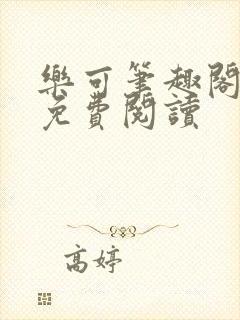 樂可筆趣閣
免費閱讀
高婷